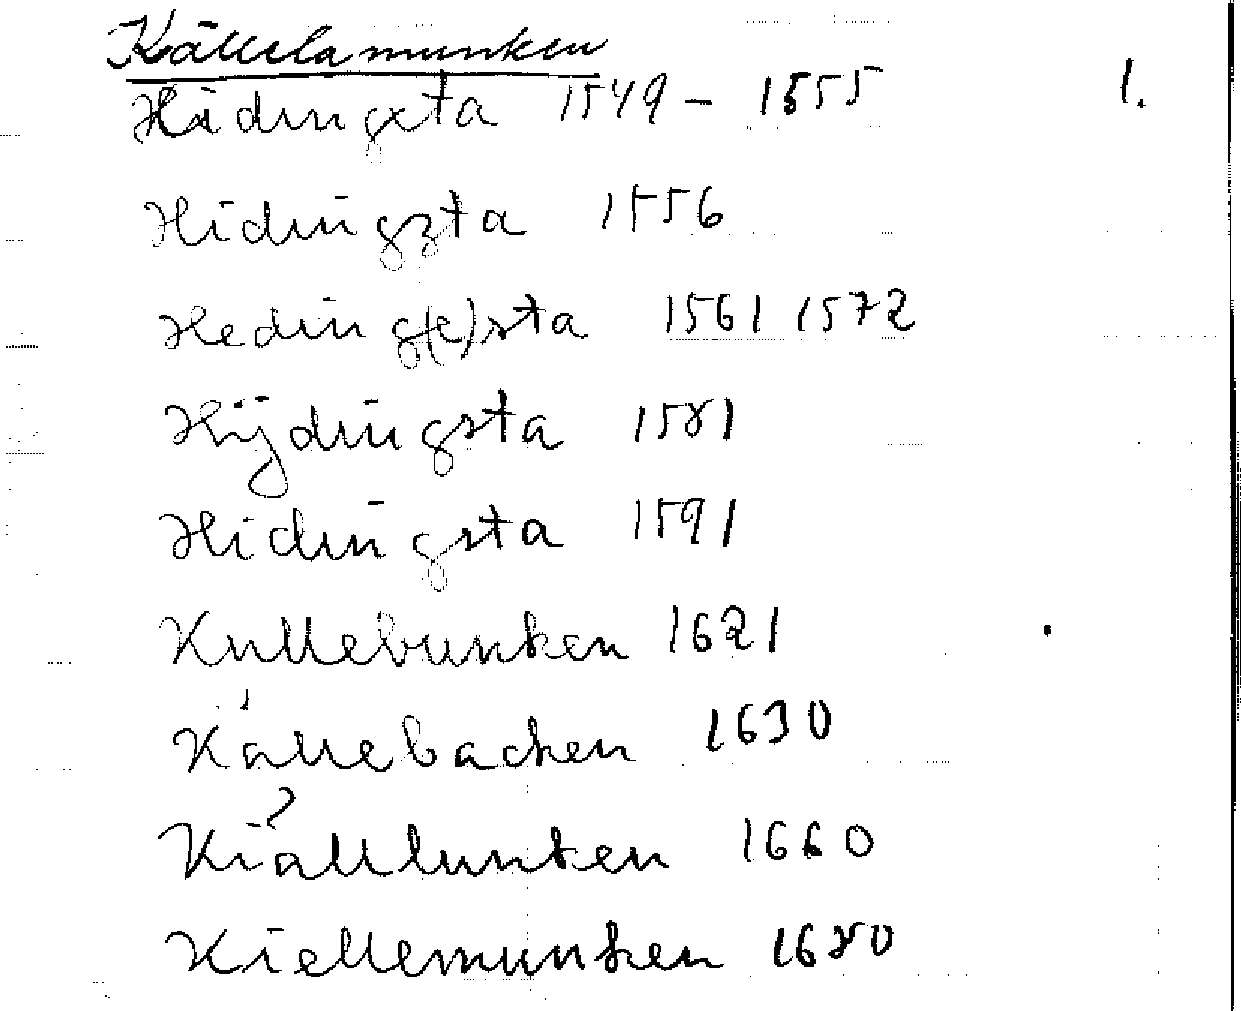 Källelamunken
Hädingxta 1549 - 1555 1.
Hidingzta 1556
Heding(e)sta 1561 1572
Hijdingsta 1581
Hidingsta 1591
Kullebunken 1621
Källebacken 1630
Kiällunken 1660
Kiellemunken 1680